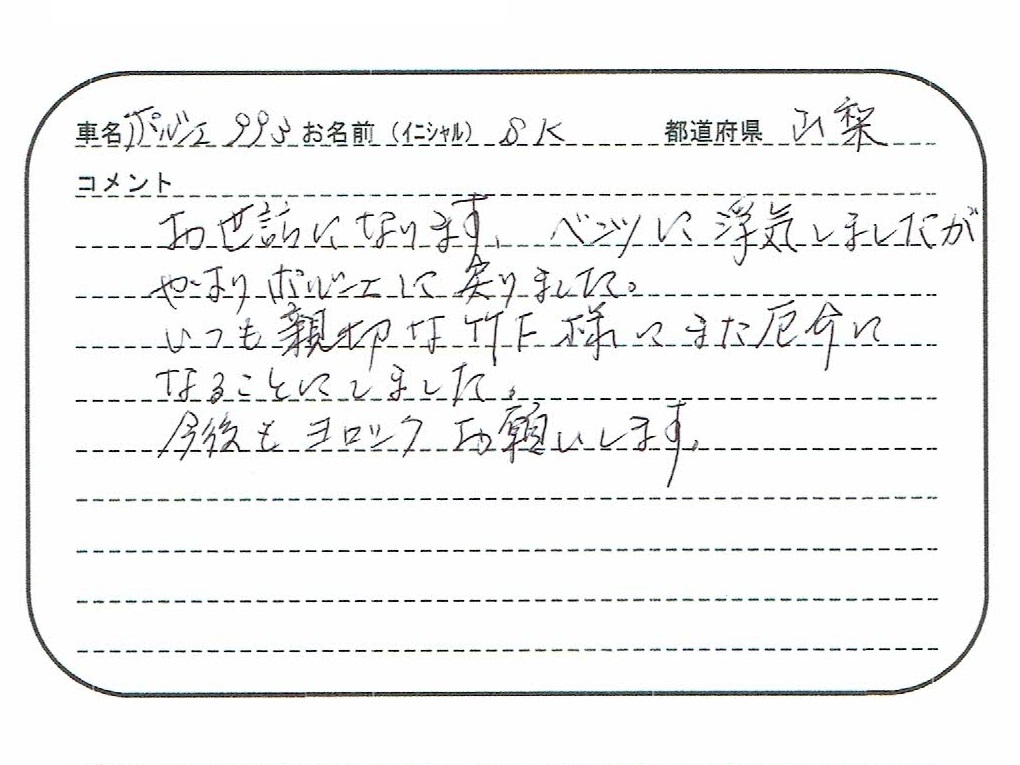 車名 ポルシェ 993 お名前（イニシャル） SK 都道府県 山梨
コメント
お世話になります、ベンツに浮気しましたが
やはりポルシェに戻りました。
いつも親切な竹下様にまた厄介に
なることにしました。
今後もヨロシクお願いします。